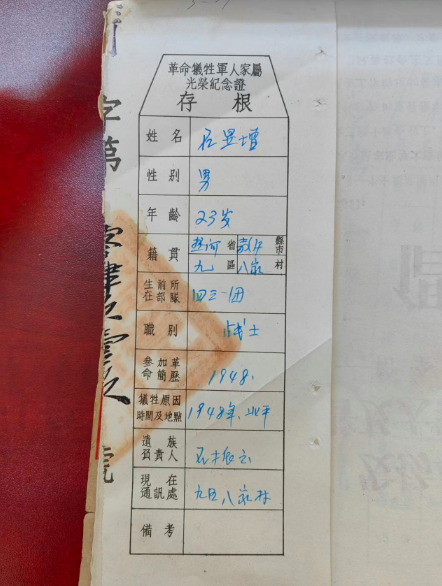 革命犧牲軍人家屬
光榮紀念證
存根
姓名
性别 男
年齡 23岁
籍貫 热河省 縣市
九區八家村
生前所在部隊 四三一团
職别 战士
參加革命簡歷 1948.
犧牲原因時間及地點 1948年.北平
遺族負責人
現在通訊處 九区八家村
備考
字第
號